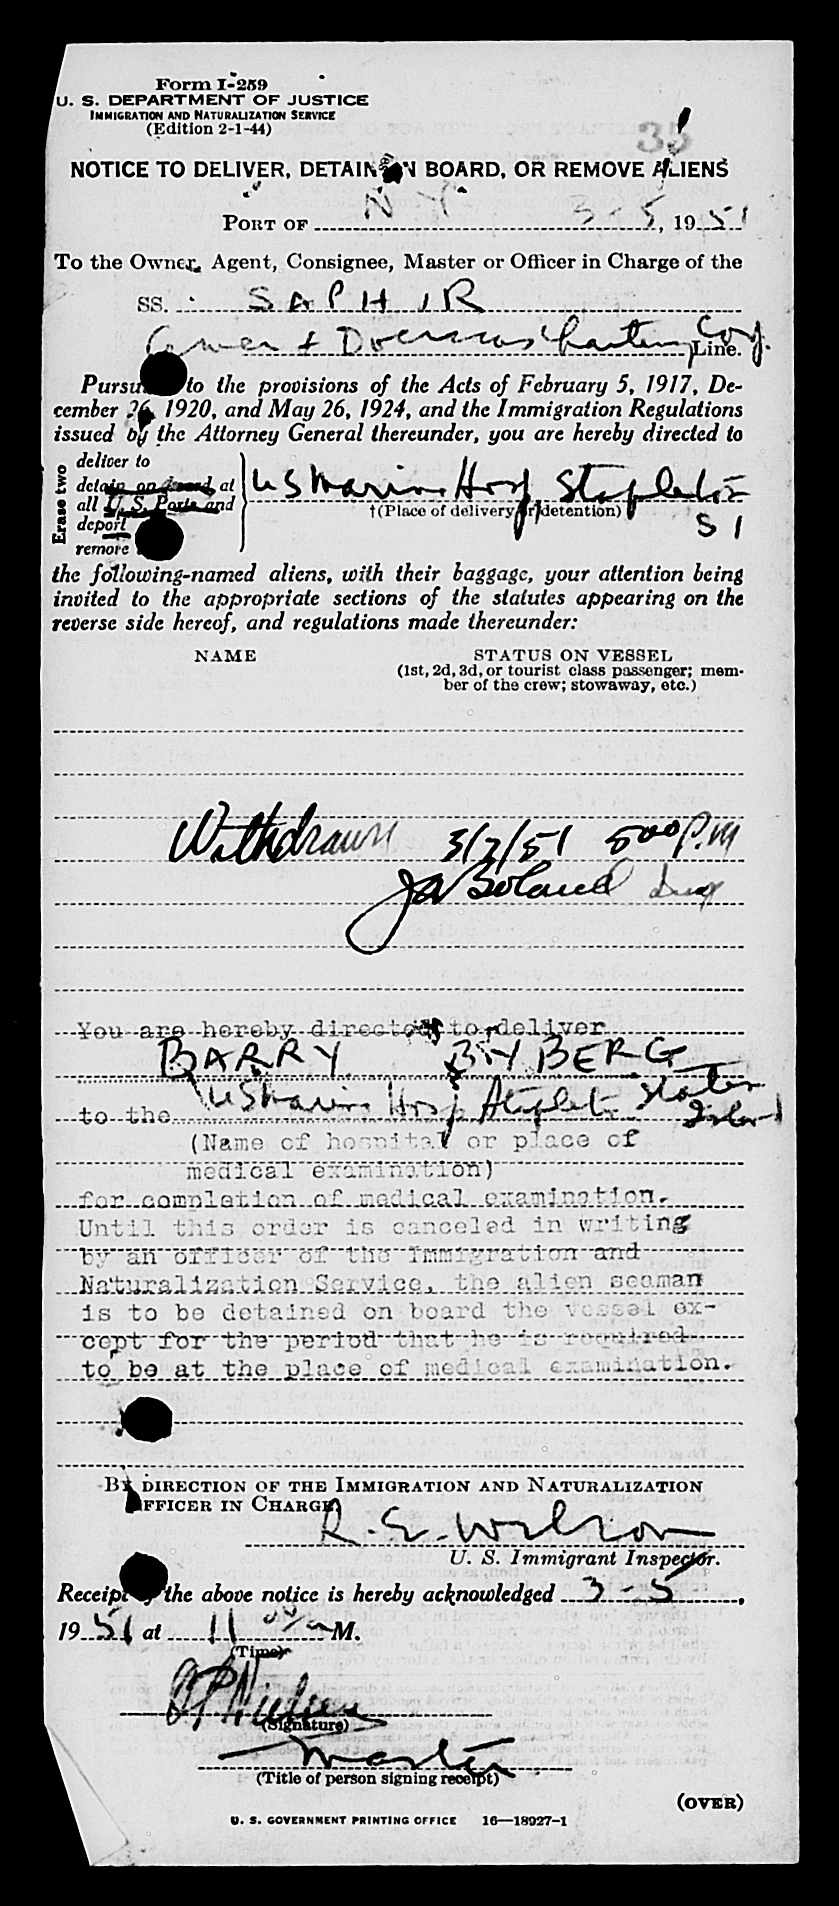 Form I-259
U. S. DEPARTMENT OF JUSTICE
IMMIGRATION AND NATURALIZATION SERVICE
(Edition 2-1-44)
35
NOTICE TO DELIVER, DETAIN ON BOARD, OR REMOVE ALIENS
PORT OF N Y 3-5, 1951
To the Owner, Agent, Consignee, Master or Officer in Charge of the
SS. SAPHIR
& Overseas Chartering Corp. Line.
Pursuant to the provisions of the Acts of February 5, 1917, De-
cember 26, 1920, and May 26, 1924, and the Immigration Regulations
issued by the Attorney General thereunder, you are hereby directed to
Erase two
deliver to
detain on board at
all U. S. Ports and
deport
remove
US Marine Hosp Stapleton
†(Place of delivery or detention)
S I
the following-named aliens, with their baggage, your attention being
invited to the appropriate sections of the statutes appearing on the
reverse side hereof, and regulations made thereunder:
NAME STATUS ON VESSEL
(1st, 2d, 3d, or tourist class passenger; mem-
ber of the crew; stowaway, etc.)
Withdrawn 3/7/51 500 P.M
JA Boland Insp
You are hereby directed to deliver
BARRY BYBERG
to the US Marine Hosp Stapleton Staten
Island
(Name of hospital or place of
medical examination)
for completion of medical examination.
Until this order is canceled in writing
by an officer of the Immigration and
Naturalization Service, the alien seaman
is to be detained on board the vessel ex-
cept for the period that he is required
to be at the place of medical examination.
BY DIRECTION OF THE IMMIGRATION AND NATURALIZATION
OFFICER IN CHARGE.
R. E. Wilson
U. S. Immigrant Inspector.
Receipt of the above notice is hereby acknowledged 3-5,
1951 at 11 00 a M.
(Time)
Nielsen
(Signature)
Master
(Title of person signing receipt)
(OVER)
U. S. GOVERNMENT PRINTING OFFICE 16—18927-1